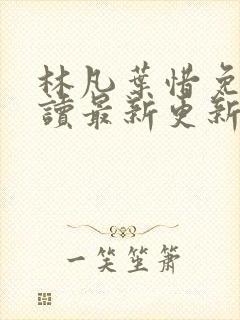 林凡葉惜免
讀最新更新
一笑笙簫